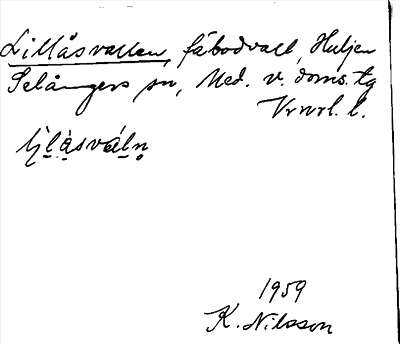 Lillåsvallen, fäbodvall, Huljen
Selångers sn, Med. v. doms. tg
Vrvrl. l.
lı̀l̥ásváln̥
1959
K. Nilsson